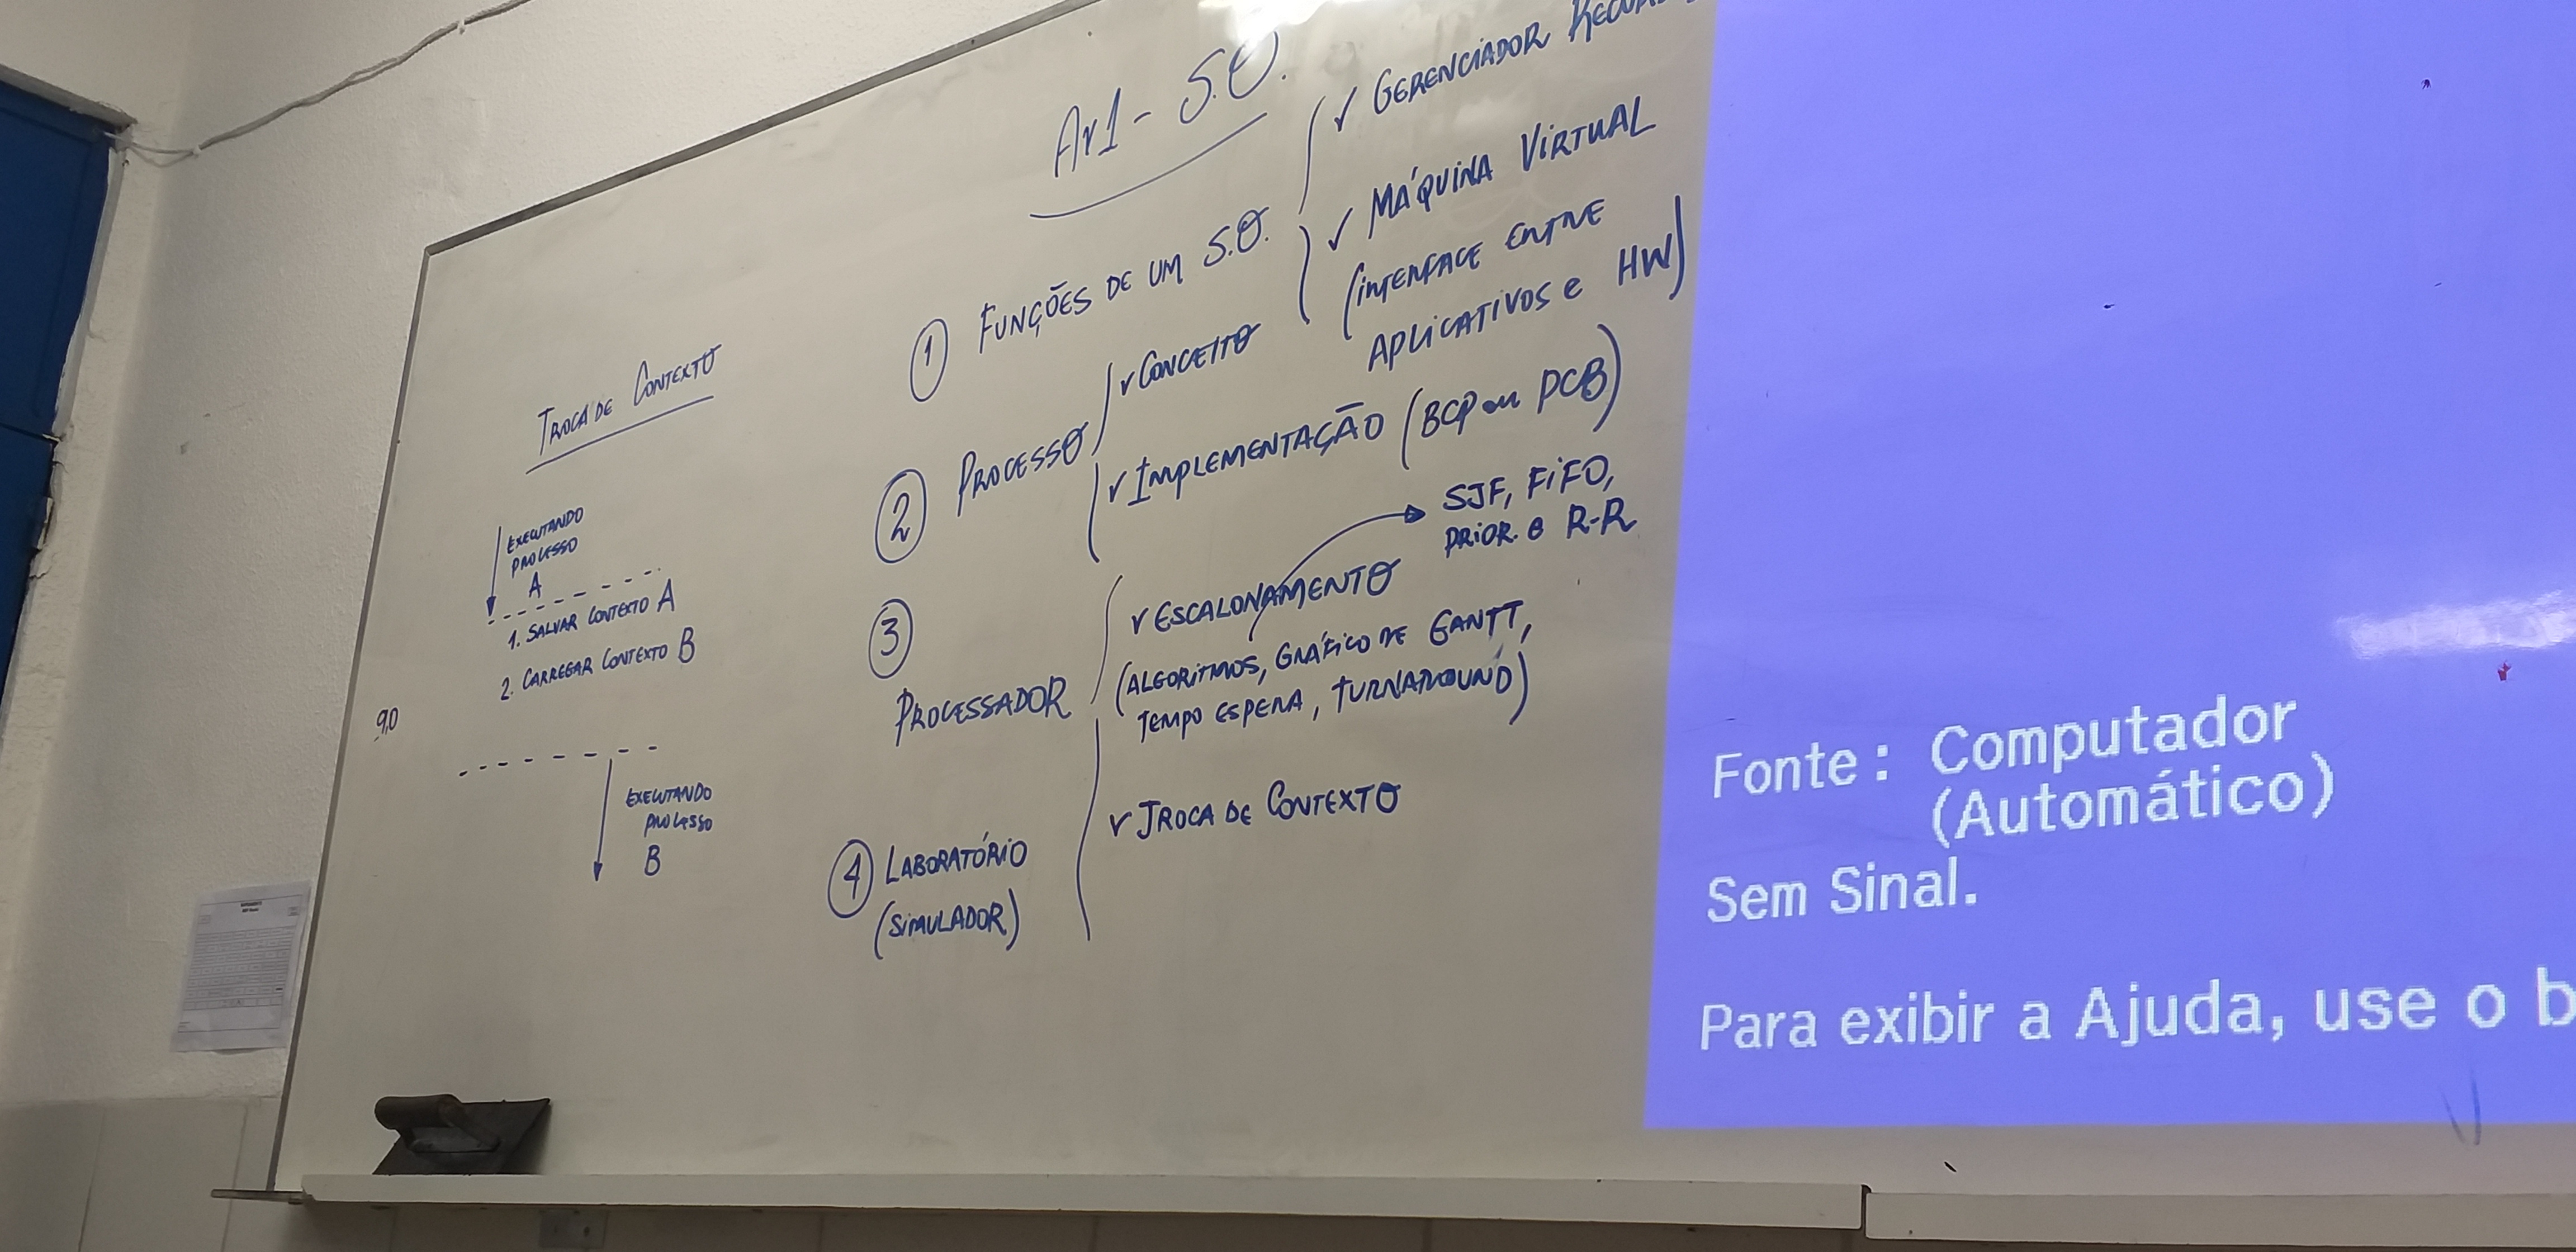 Av1 - S.O.
① FUNÇÕES DE UM S.O.
✓ GERENCIADOR
✓ MÁQUINA VIRTUAL
(INTERFACE ENTRE
APLICATIVOS e HW)
② PROCESSO
✓ CONCEITO
✓ IMPLEMENTAÇÃO (BCP ou PCB)
③
PROCESSADOR
✓ ESCALONAMENTO
SJF, FIFO,
PRIOR. e R-R
(ALGORITMOS, GRÁFICO DE GANTT,
TEMPO ESPERA, TURNAROUND)
✓ TROCA DE CONTEXTO
④ LABORATÓRIO
(SIMULADOR)
TROCA DE CONTEXTO
EXECUTANDO
PROCESSO
A
1. SALVAR CONTEXTO A
2. CARREGAR CONTEXTO B
9,0
EXECUTANDO
PROCESSO
B
Fonte : Computador
(Automático)
Sem Sinal.
Para exibir a Ajuda, use o b